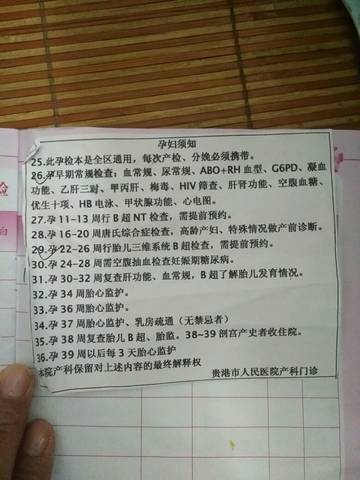 孕妇须知
25.此孕检本是全区通用，每次产检、分娩必须携带。
26.孕早期常规检查：血常规、尿常规、ABO+RH 血型、G6PD、凝血
功能、乙肝三对、甲丙肝、梅毒、HIV 筛查、肝肾功能、空腹血糖、
优生十项、HB 电泳、甲状腺功能、心电图。
27.孕 11-13 周行 B 超 NT 检查，需提前预约。
28.孕 16-20 周唐氏综合症检查，高龄产妇、特殊情况做产前诊断。
29.孕 22-26 周行胎儿三维系统 B 超检查，需提前预约。
30.孕 24-28 周需空腹抽血检查妊娠期糖尿病。
31.孕 30-32 周复查肝功能、血常规，B 超了解胎儿发育情况。
32.孕 34 周胎心监护。
33.孕 36 周胎心监护。
34.孕 37 周胎心监护、乳房疏通（无禁忌者）
35.孕 38 周复查胎儿 B 超、胎监。38~39 剖宫产史者收住院。
36.孕 39 周以后每 3 天胎心监护
本院产科保留对上述内容的最终解释权
贵港市人民医院产科门诊